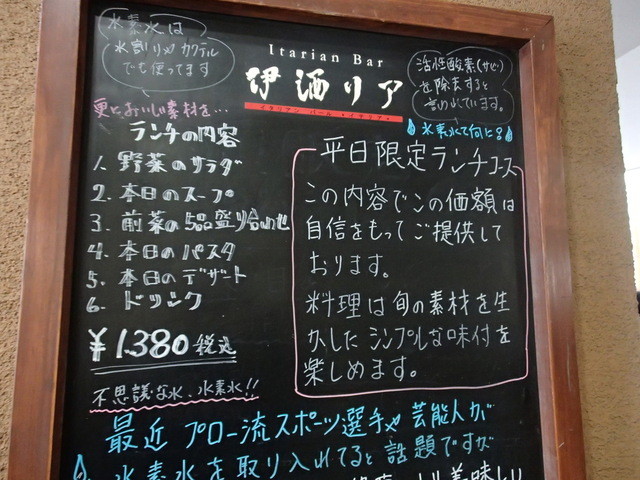 水素水は
水割りやカクテル
でも使ってます
Itarian Bar
伊酒リア
イタリアン バール イザリア
活性酸素(サビ)
を除去すると
言われています。
水素水て何に?
更においしい素材を…
ランチの内容
1. 野菜のサラダ
2. 本日のスープ
3. 前菜の5品盛り合わせ
4. 本日のパスタ
5. 本日のデザート
6. ドリンク
¥1.380 税込
平日限定ランチコース
この内容でこの価額は
自信をもってご提供して
おります。
料理は旬の素材を生
かしたシンプルな味付を
楽しめます。
不思議な水、水素水!!
最近 プロ一流スポーツ選手や 芸能人が
水素水を取り入れてると 話題ですが
美味しい